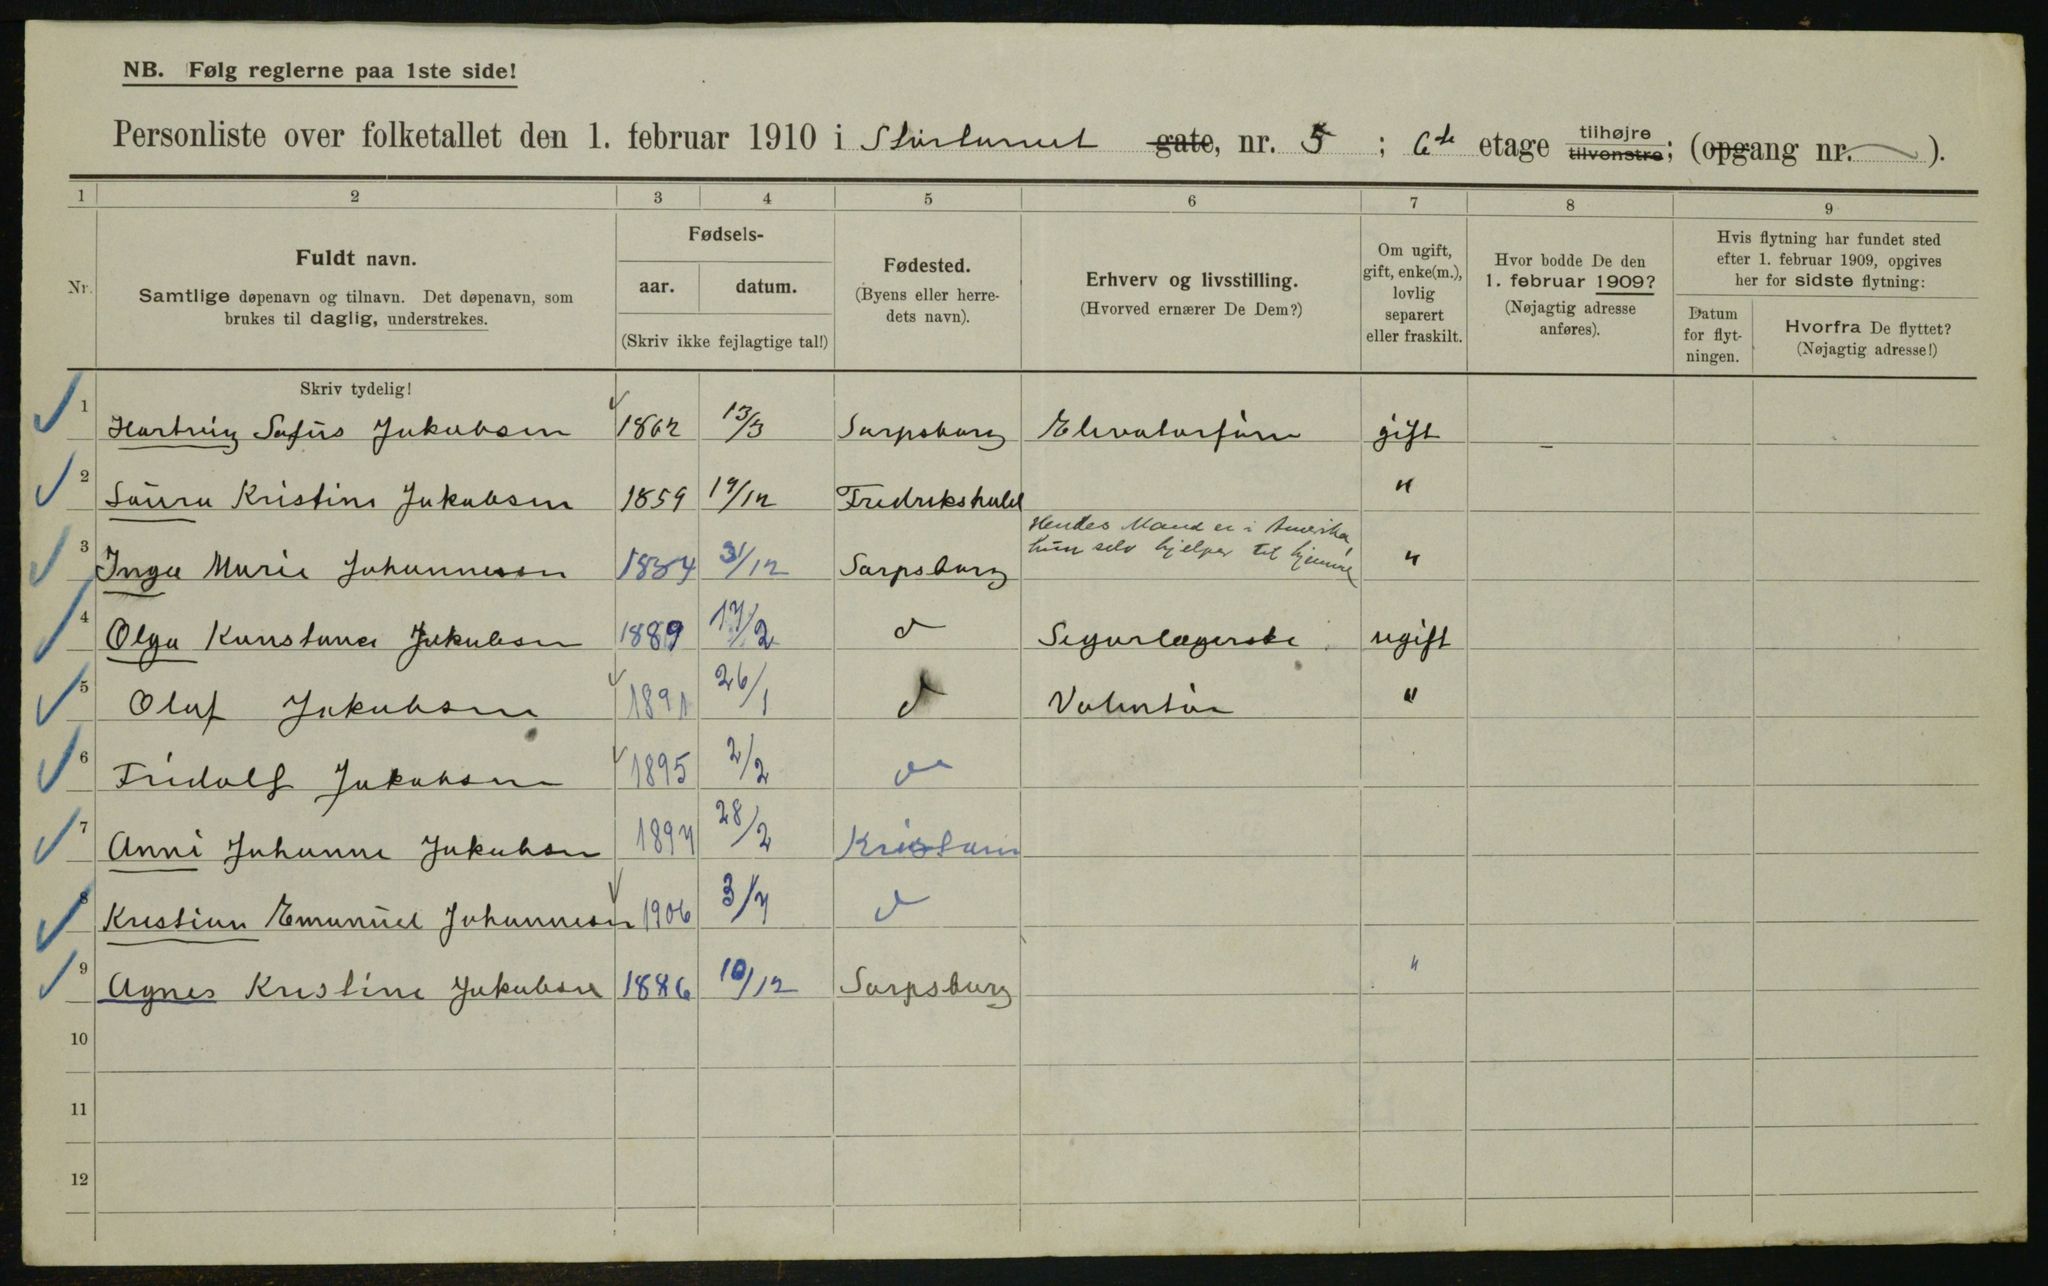 NB. Følg reglerne paa 1ste side!
Personliste over folketallet den 1. februar 1910 i Stortorvet gate, nr. 5 ; 6te etage tilhøjre tilvenstre; (opgang nr. ).
1 2 3 4 5 6 7 8 9
Nr. Fuldt navn. Samtlige døpenavn og tilnavn. Det døpenavn, som brukes til daglig, understrekes.
Fødsels- aar. datum. (Skriv ikke fejlagtige tal!)
Fødested. (Byens eller herredets navn).
Erhverv og livsstilling. (Hvorved ernærer De Dem?)
Om ugift, gift, enke(m.), lovlig separert eller fraskilt.
Hvor bodde De den 1. februar 1909? (Nøjagtig adresse anføres).
Hvis flytning har fundet sted efter 1. februar 1909, opgives her for sidste flytning:
Datum for flytningen.
Hvorfra De flyttet? (Nøjagtig adresse!)
Skriv tydelig!
1 Hartvig Sofus Jakobsen 1862 13/3 Sarpsborg Elevatorfører gift –
2 Laura Kristine Jakobsen 1859 19/12 Fredrikshald "
Hendes Mand er i Amerika,
hun selv hjelper til hjemme
3 Inga Marie Johannesen 1884 31/12 Sarpsborg "
4 Olga Konstance Jakobsen 1889 17/2 d Sigarlægerske ugift
5 Olaf Jakobsen 1891 26/1 d Volontør "
6 Fridolf Jakobsen 1895 2/2 do
7 Anni Johanne Jakobsen 1897 28/2 Kristiania
8 Kristian Emanuel Johannesen 1906 3/7 d
9 Agnes Kristine Jakobsen 1886 10/12 Sarpsborg "
10
11
12